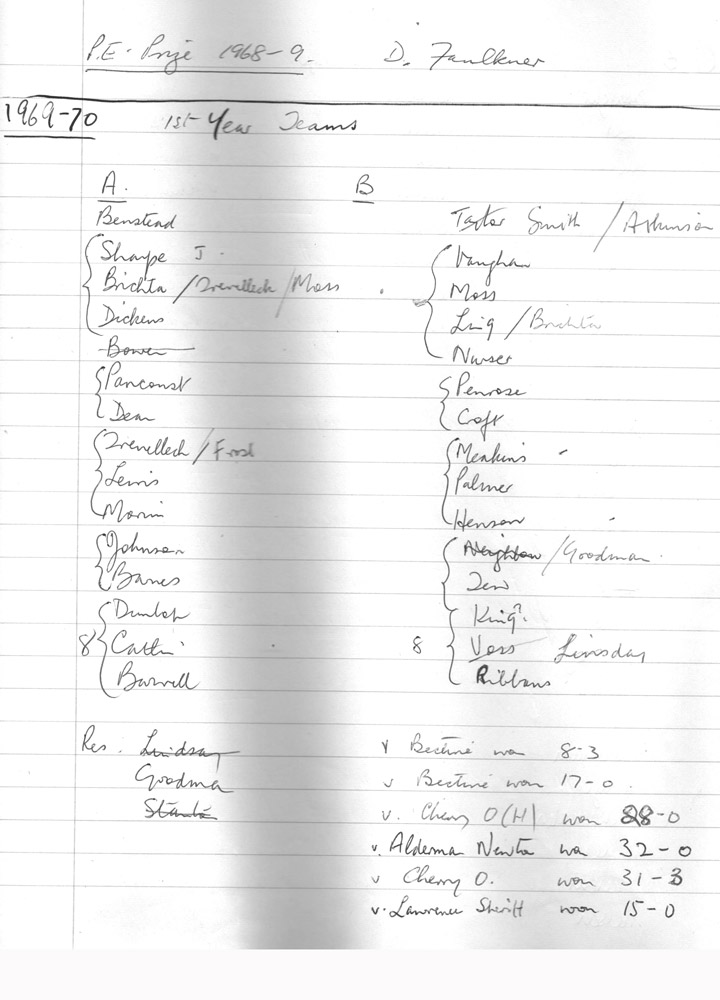 P.E. Prize 1968-9. D. Faulkner
1969-70 1st Year Teams
A. B
Benstead Taylor Smith / Atkinson
Sharpe J. Vaughan
Brichta / Trevelleck / Moss Moss
Dickens Ling / Brichta
Bowen Nurser
Panconst Penrose
Dean Croft
Trevelleck / Frost Meakins
Lewis Palmer
Henson
Johnson / Goodman
Banes Tew
Dunlop King?
8 Catlin 8 Voss Linsday
Barwell Ribbans
Res. Lindsay v Bectivé won 8-3
Goodma v Bectivé won 17-0.
v. Cherry O(H) won 28-0
v. Alderman Newton won 32-0
v Cherry O. won 31-3
v. Lawrence Sheriff won 15-0